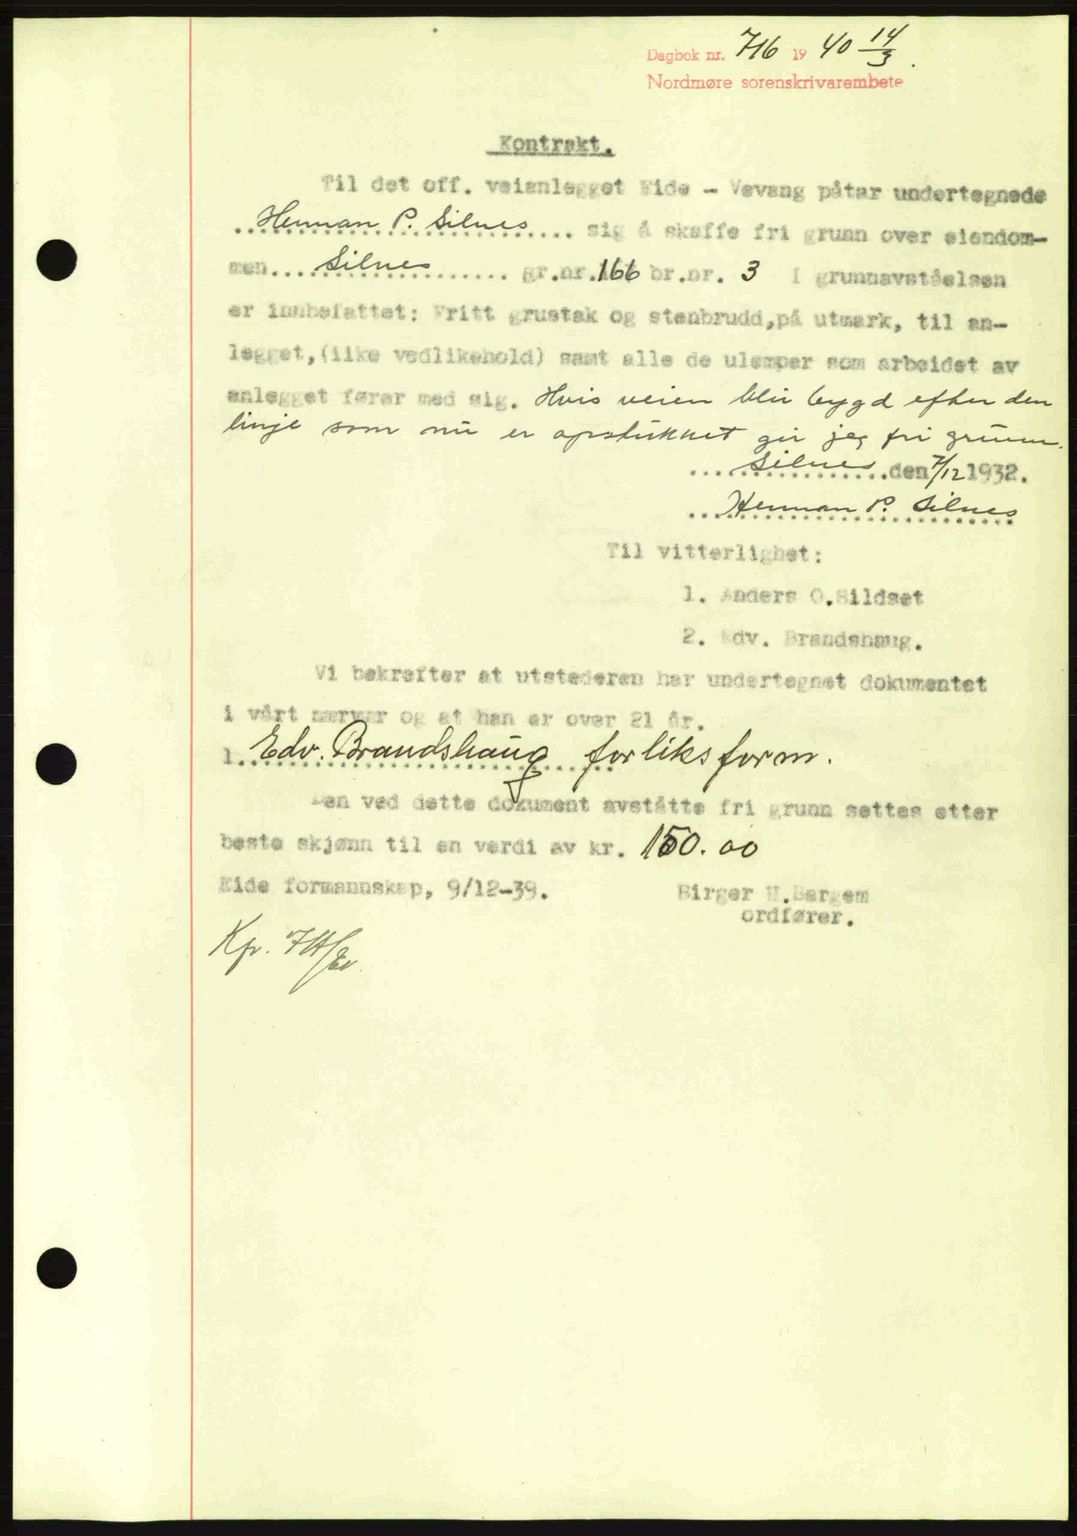 Dagbok nr. 716 1940 14/3.
Nordmøre sorenskrivarembete
Kontrakt.
Til det off. veianlegget Eide - Vevang påtar undertegnede
Herman P. Silnes sig å skaffe fri grunn over eiendom-
men....Silnes........ gr.nr.166 br.nr. 3 I grunnavståelsen
er innbefattet: Fritt grustak og stenbrudd,på utmark, til an-
legget,(iike vedlikehold) samt alle de ulemper som arbeidet av
anlegget fører med sig. Hvis veien blir bygd efter den
linje som nu er opstukket gir jeg fri grunn.
Silnes den 7/12 1932.
Herman P. Silnes
Til vitterlighet:
1. Anders O.Sildset
2. Edv. Brandshaug.
Vi bekrefter at utstederen har undertegnet dokumentet
i vårt nærvær og at han er over 21 år.
1. Edv. Brandshaug forliksform.
Den ved dette dokument avståtte fri grunn settes etter
beste skjønn til en verdi av kr. 150.00
Eide formannskap, 9/12-39. Birger H.Bergem
ordfører.